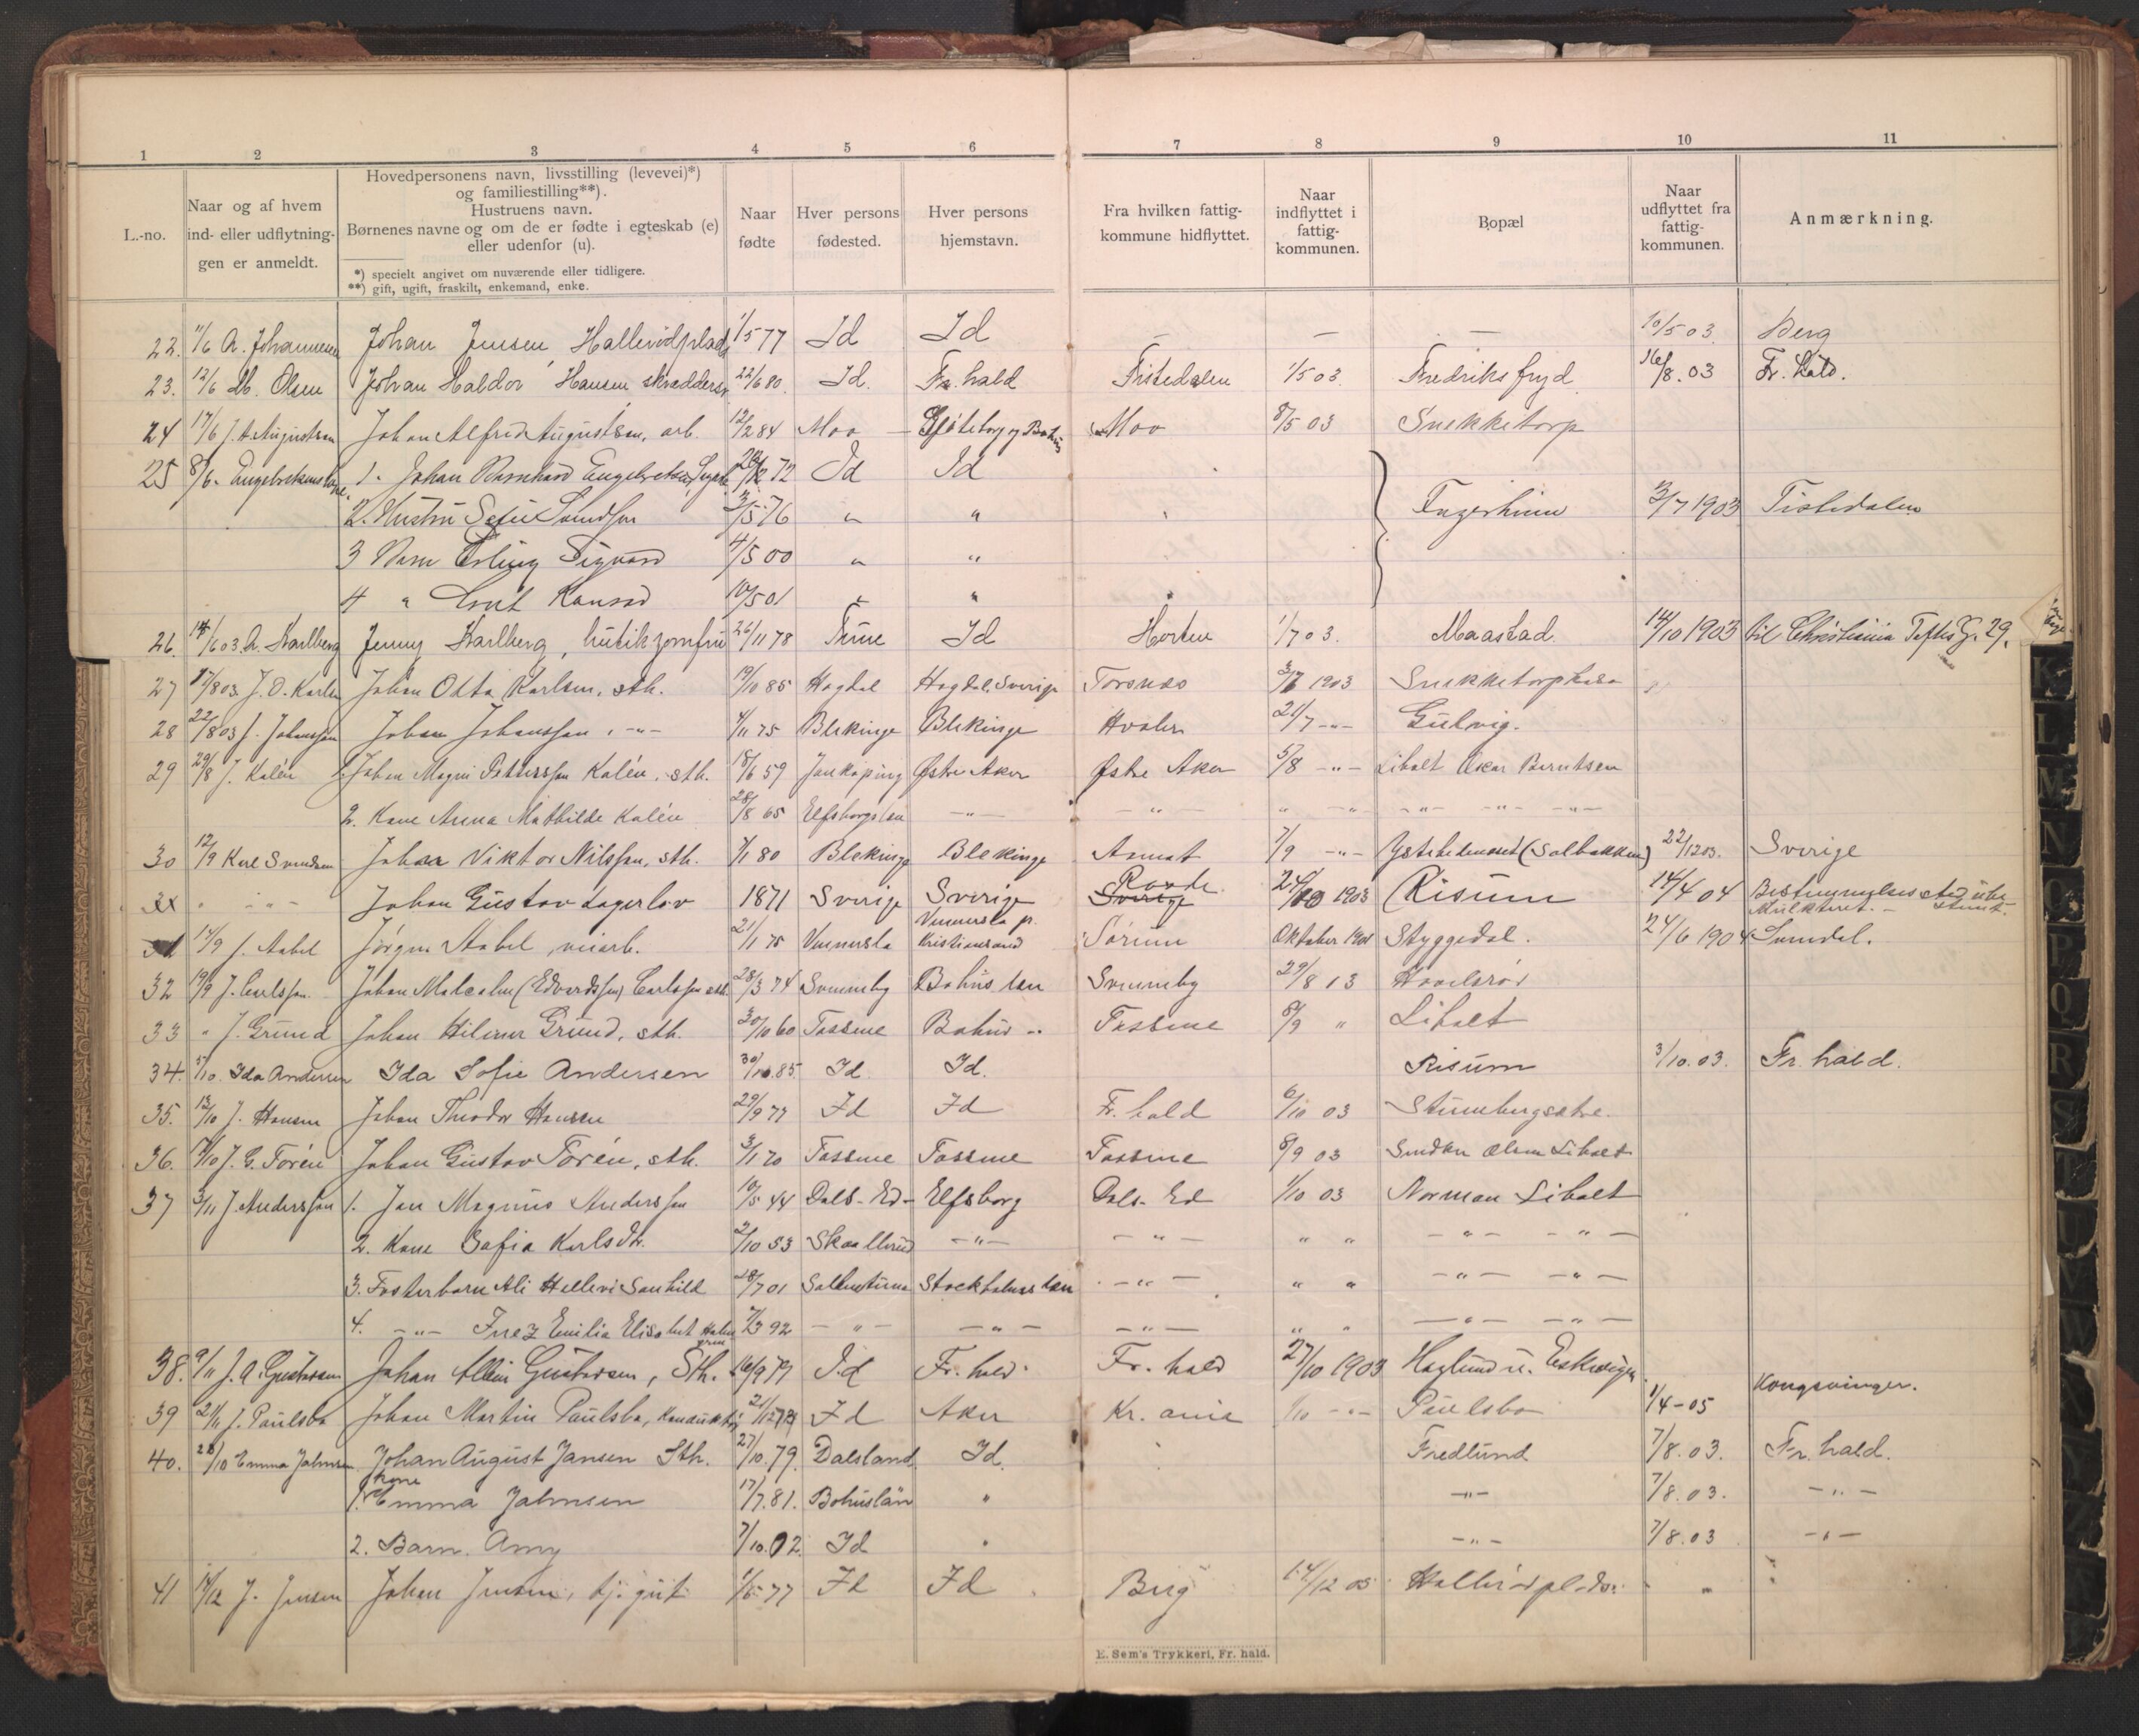 1 2 3 4 5 6 7 8 9 10 11
L.-no.
Naar og af hvem
ind- eller udflytnin-
gen er anmeldt.
Hovedpersonens navn, livsstilling (levevei)*)
og familiestilling**).
Hustruens navn.
Børnenes navne og om de er fødte i egteskab (e)
eller udenfor (u).
*) specielt angivet om nuværende eller tidligere.
**) gift, ugift, fraskilt, enkemand, enke.
Naar
fødte
Hver persons
fødested.
Hver persons
hjemstavn.
Fra hvilken fattig-
kommune hidflyttet.
Naar
indflyttet i
fattig-
kommunen.
Bopæl
Naar
udflyttet fra
fattig-
kommunen.
Anmærkning.
22. 11/6 A. Johannesen Johan Jensen, Hallerødplads 1/5 77 Id Id — — — 10/5 03. Berg
23. 12/6 M. Olsen Johan Haldor Hansen skræddersv. 22/6 80. Id. Fr. hald Tistedalen 1/5 03 Fredriksfryd 16/8. 03 Fr. hald.
24 17/6 J. A. Augustsen Johan Alfred Augustsen, arb. 12/2 84 Moo Gøteborg og Bohus Moo 8/5 03 Snekketorp
25 8/6. Engebretsens kone. 1. Johan Bernhard Engebretsen 72 Id Id
2. Hustru Sofie Svendsen 3/5 76 " " 2/7 1903 Tistedalen
3 Barn Erling Sigvard 4/5 00 " "
4 " Knut Konrad 10/5 01 " "
26. 14/6 03. A. Karlberg Jenny Karlberg, butikjomfru 26/11 78 Tune Id Horten 1/7 03. Maastad. 14/10 1903 til Christiania Toftes G. 29.
27 17/8 03 J. O. Karlsen Johan Otto Karlsen, sth. 19/10 85 Hogdal Hogdal, Sverige Torsnes 1903 Snekketorpkasa
28 22/8 03 J. Johansson Johan Johansson, -"- 4/11 75 Blekinge Blekinge Hvaler 21/7 -"- Gulvig.
29 29/8 J. Kalén 1. Johan Magni Pettersson Kalén, sth. 18/6 59 Jonkøping Østre Aker Østre Aker 5/8 -"- Liholt Oskar Berntsen
2. Kone Anna Mathilde Kalén 28/8 65 Elfsborgslän -"- -"- " -"- -"- -"- -"-
30 12/9 Karl Svendsen Johan Viktor Nilsson, sth. 1/1 80 Blekinge Blekinge Asmat 7/9 -"- (Solbakken) 22/12 03. Sverige
" -"- Johan Gustav Lagerløv 1871 Sverige Sverige Sverige Raade 1903 Risum 14/4 04 Bestemmelsessted ube-
stemt. Mulkteret. -
31 14/9 J. Aabel Jørgen Aabel, veiarb. 21/1 75 Vennesla Vennesla p. Kristiansand Sørum Oktober 1901 Styggedal. 24/6 1904 Surndal.
32 19/9 J. Carlsson. Johan Malcolm (Edvardsson) Carlsson sth. 28/3 74 Svenneby Bohus län Svenneby 29/8 03 Hovelsrød
33 " J. Grund Johan Hilmer Grund, sth. 30/10 60 Tossene Bohus -" Tossene 8/9 " Liholt
34. 5/10. Ida Andersen Ida Sofie Andersen 30/10. 85. Id Id. Risum 3/10. 03. Fr. hald.
35. 13/10 J. Hansen Johan Theodor Hansen 29/9 77 Id Id Fr. hald 6/10 03
36. 19/10 J. G. Torén Johan Gustav Torén, sth. 3/1 70 Tossene Tossene Tossene 8/9 03 Olsen Liholt
37 3/11 J. Andersson 1. Jan Magnus Andersson 10/5 44 Dals-Ed- Elfsborg Dals-Ed 1/10 03 Norman Liholt
2. Kone Sofia Karlsdtr. 2/10 53 Skaallerud -"- -"- " " -"- -"-
3. Fosterbarn Ali Hellevi Sanhild 28/7 01 Sollentuna Stockholms län -"- " " -"- -"-
4. -"- Inez Emilia Elisabet 7/3 92 -"- -"- -"- " " -"- -"-
38. 9/11 J. A. Gustavsen Johan Albin Gustavsen, Sth. 16/9 79 Id Fr. hald. Fr. hald 27/10 1903 Haglund u. Eskevigen
39 21/11 J. Paulsbo Johan Martin Paulsbo, Konduktør Id Aker Kr.ania 1/10 -"- Paulsbo 1/4-05 Kongsvinger.
40. 28/10 Emma Johnsen Johan August Jansen Sth. 27/10. 79. Dalsland Id. Fredlund 7/8. 03. Fr. hald.
1. kone Emma Johnsen 17/7. 81. Bohuslän " -"- 7/8. 03. -"-
2. Barn. Amy 7/10. 02. Id " -"- 7/8. 03 -"-
41 14/12 J. Jensen Johan Jensen, tj. gut 1/5 77 Id Id Berg 14/12 03 Hallerødplads.
E. Sem's Trykkeri, Fr. hald.
K
L
M
N
O
P
Q
R
S
T
U
V
W